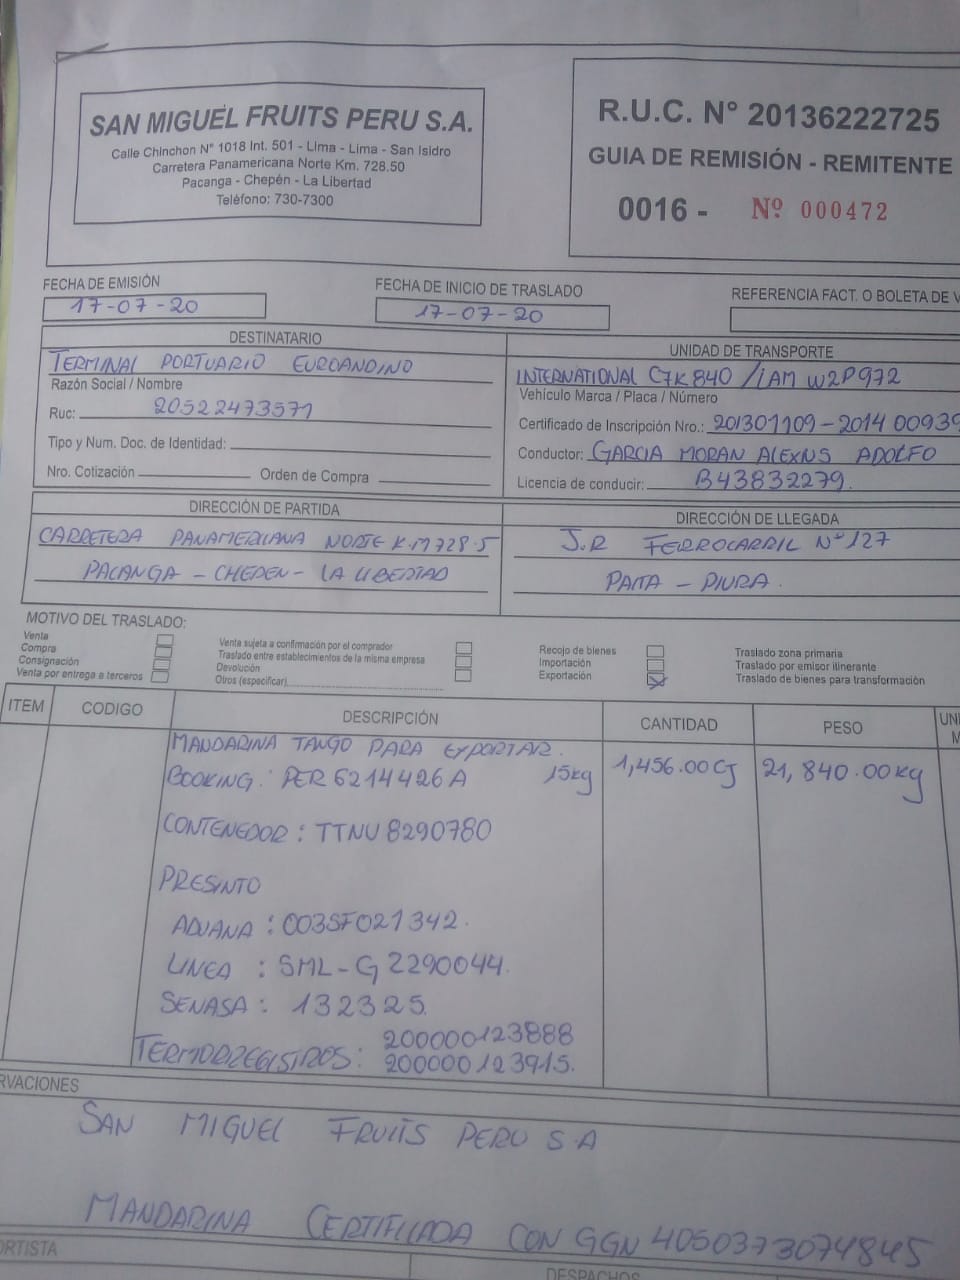 SAN MIGUEL FRUITS PERU S.A.
Calle Chinchon N° 1018 Int. 501 - Lima - Lima - San Isidro
Carretera Panamericana Norte Km. 728.50
Pacanga - Chepén - La Libertad
Teléfono: 730-7300
R.U.C. N° 20136222725
GUIA DE REMISIÓN - REMITENTE
0016 - Nº 000472
FECHA DE EMISIÓN
17-07-20
FECHA DE INICIO DE TRASLADO
17-07-20
REFERENCIA FACT. O BOLETA DE V
DESTINATARIO
TERMINAL PORTUARIO EUROANDINO
Razón Social / Nombre
Ruc: 20522473571
Tipo y Num. Doc. de Identidad:
Nro. Cotización Orden de Compra
UNIDAD DE TRANSPORTE
INTERNATIONAL C7K840 / IAM W2P972
Vehículo Marca / Placa / Número
Certificado de Inscripción Nro.: 201301109-201400939
Conductor: GARCIA MORAN ALEXNS ADOLFO
Licencia de conducir: B43832279.
DIRECCIÓN DE PARTIDA
CARRETERA PANAMERICANA NORTE K.M 728.5
PACANGA - CHEPEN - LA LIBERTAD
DIRECCIÓN DE LLEGADA
J.R FERROCARRIL N° 127
PAITA - PIURA.
MOTIVO DEL TRASLADO:
Venta
Compra
Consignación
Venta por entrega a terceros
Venta sujeta a confirmación por el comprador
Traslado entre establecimientos de la misma empresa
Devolución
Otros (especificar)
Recojo de bienes
Importación
Exportación
Traslado zona primaria
Traslado por emisor itinerante
Traslado de bienes para transformación
ITEM CODIGO DESCRIPCIÓN CANTIDAD PESO UNI
M
MANDARINA TANGO PARA EXPORTAR.
BOOKING: PER 6214426A 15kg 1,456.00 CJ 21,840.00 kg
CONTENEDOR: TTNU 8290780
PRESINTO
ADUANA: 003SF021342.
LINEA : SML-G 2290044.
SENASA: 132325.
TERMORREGISTROS: 200000123888
200000123915.
RVACIONES
SAN MIGUEL FRUITS PERU S.A
MANDARINA CERTIFICADA CON GGN 4050373074845
ORTISTA
DESPACHOS